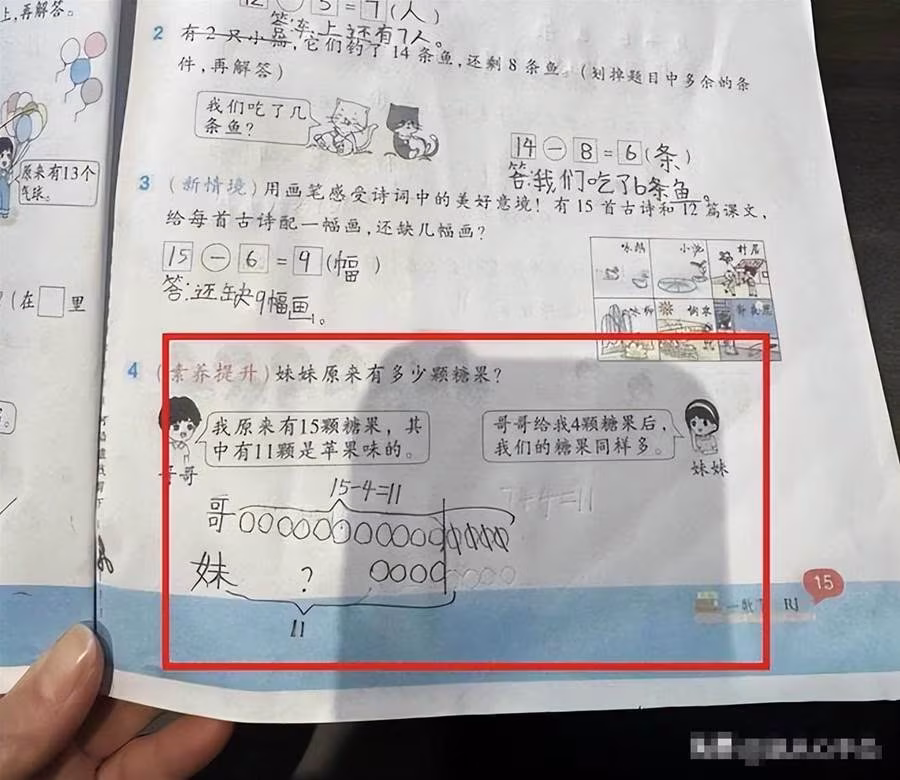 上,再解答。
= 7 (人)
答:车上还有7人。
2 有2只小猫,它们钓了14条鱼,还剩8条鱼。(划掉题目中多余的条
件,再解答)
我们吃了几
条鱼?
14 - 8 = 6 (条)
答:我们吃了6条鱼。
原来有13个
气球。
3 (新情境)用画笔感受诗词中的美好意境!有15首古诗和12篇课文,
给每首古诗配一幅画,还缺几幅画?
15 - 6 = 9 (幅)
答:还缺9幅画。
咏鹅 小池 村居
(在□里
4 (素养提升)妹妹原来有多少颗糖果?
我原来有15颗糖果,其
中有11颗是苹果味的。
哥哥
哥哥给我4颗糖果后,
我们的糖果同样多。
妹妹
15-4=11
7+4=11
哥
妹 ?
11
15
RJ